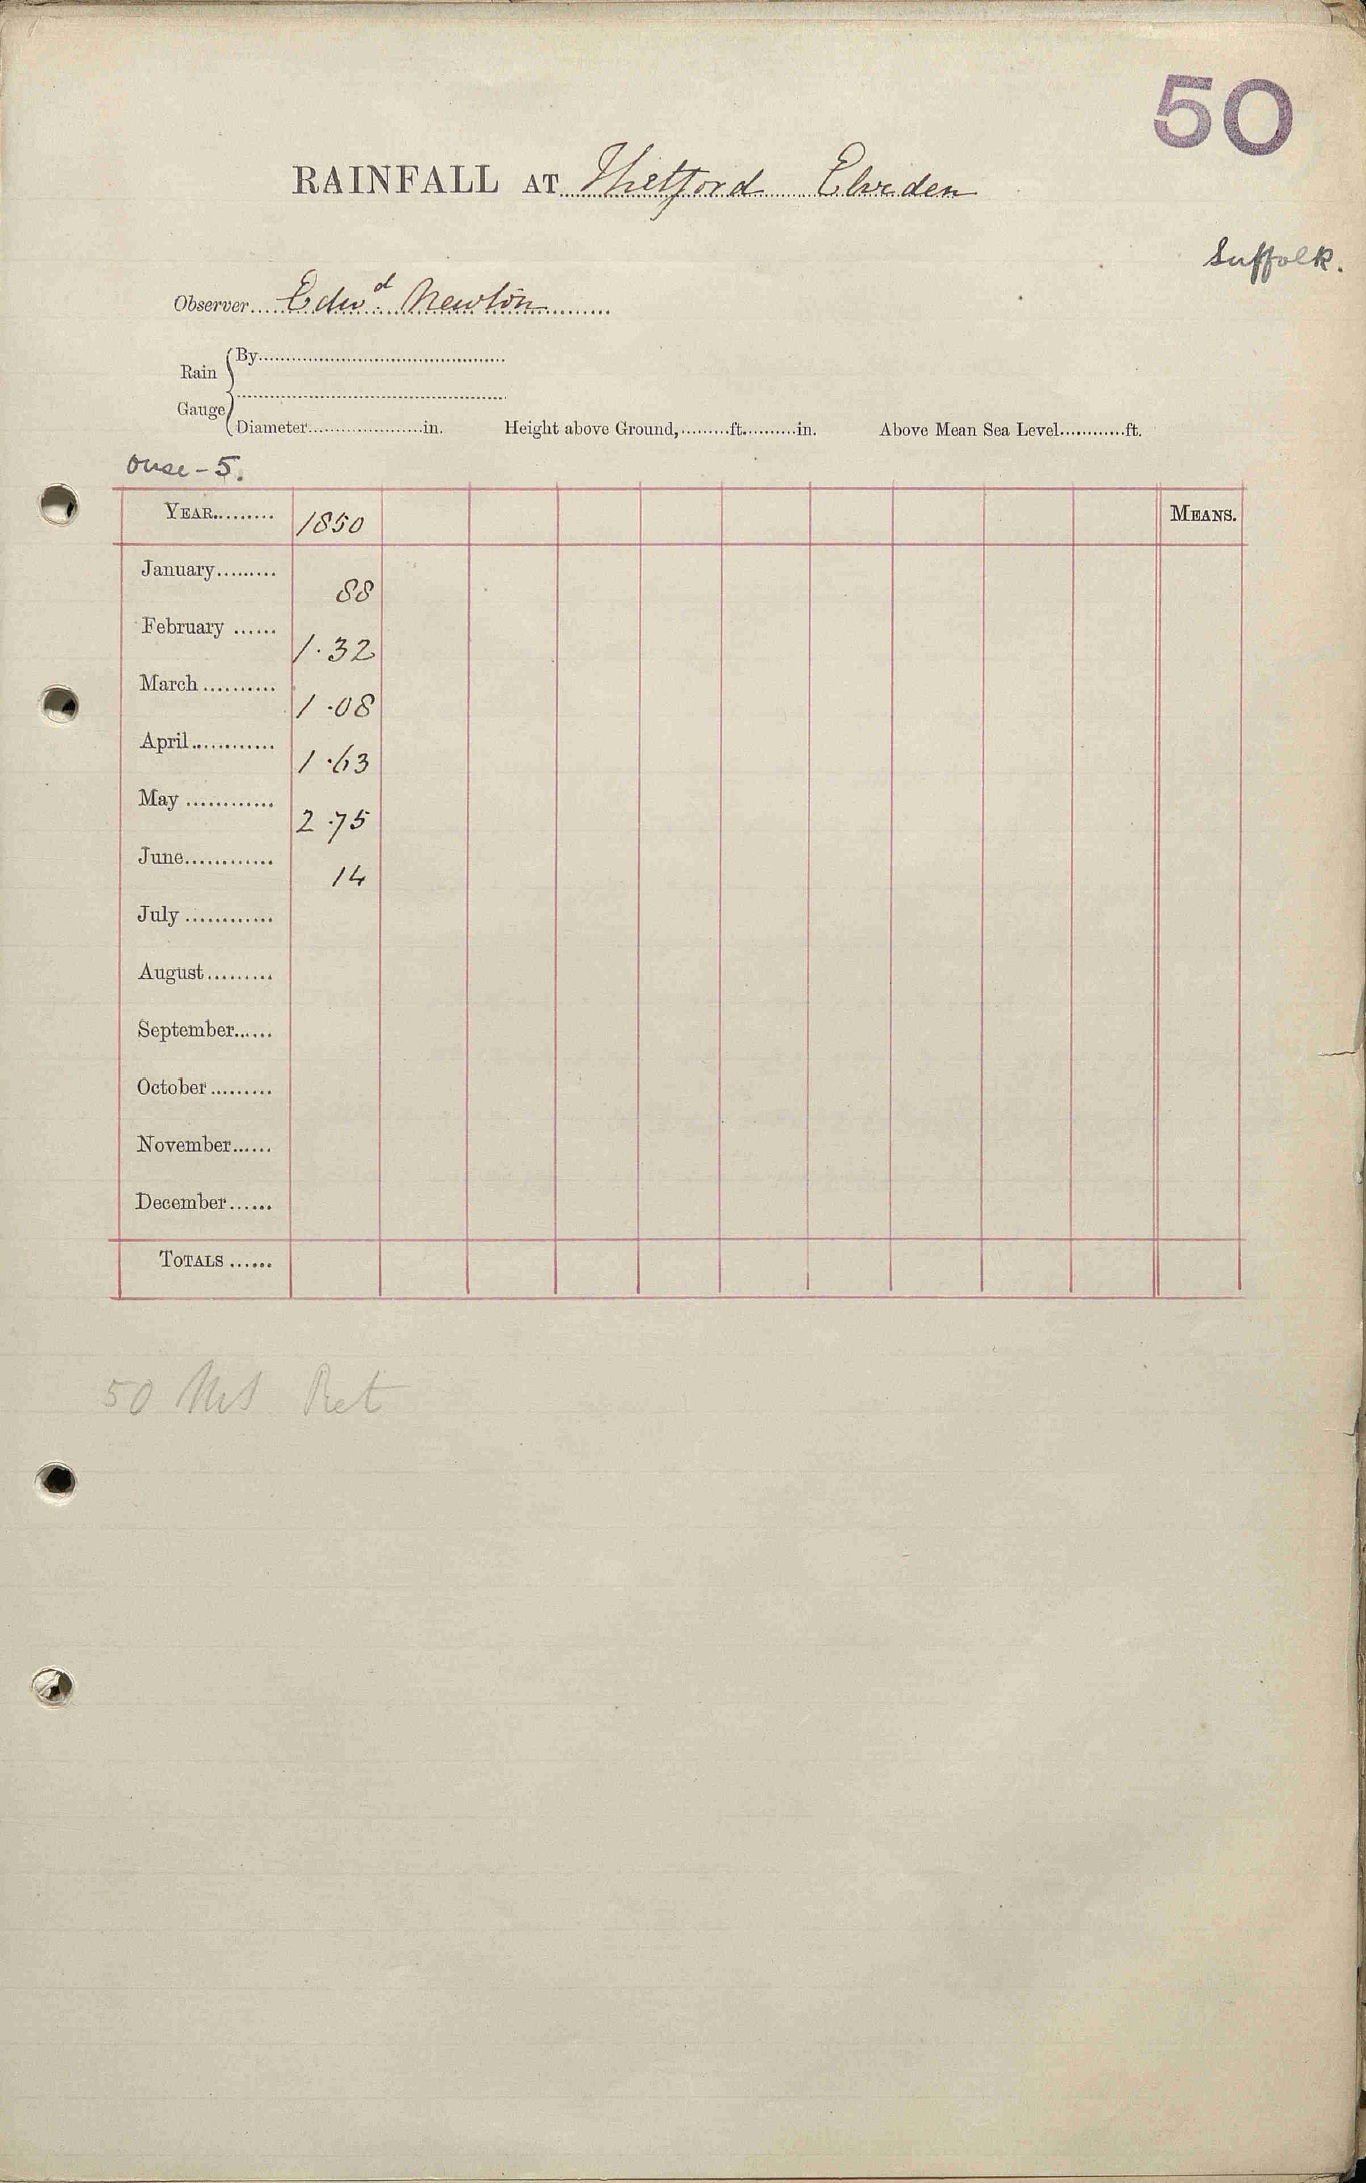 50
RAINFALL AT Thetford Elveden
Suffolk.
Observer.... Edwd. Newton
Rain Gauge
By
Diameter in. Height above Ground, ft. in. Above Mean Sea Level ft.
Ouse - 5.
YEAR 1850 MEANS.
January 88
February 1.32
March 1.08
April 1.63
May 2.75
June 14
July
August
September
October
November
December
TOTALS
50 MS Ret